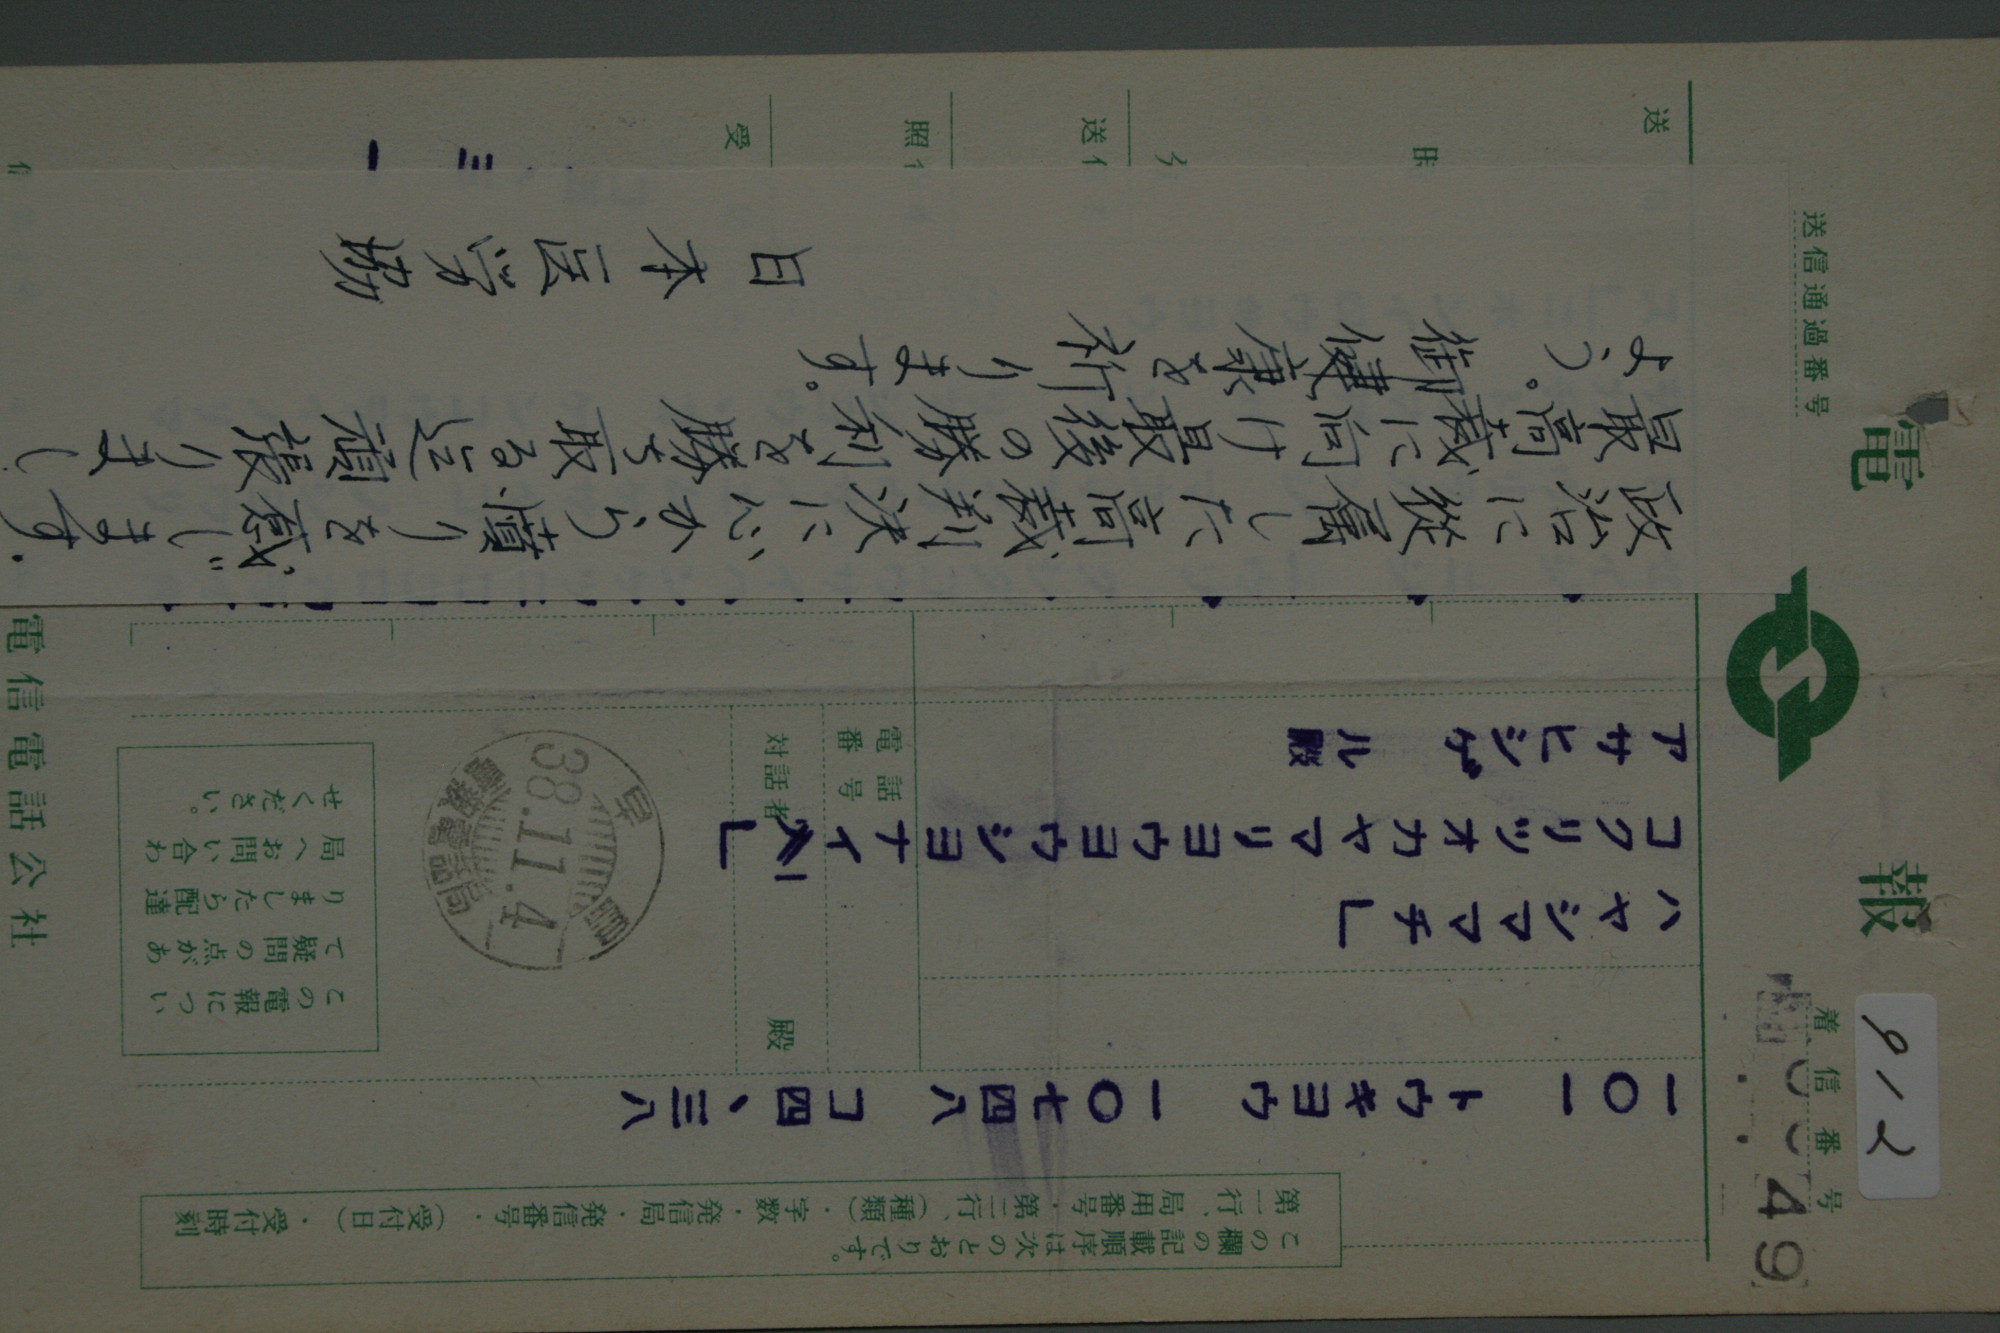 電報
着信番号
49
912
送信通過番号
この欄の記載順序は次のとおりです。
第一行、局用番号・第二行、(種類)・字数・発信局・発信番号・(受付日)・受付時刻
一〇一 トウキヨウ 一〇七四八 コ四、三八
ハヤシママチ」
コクリツオカヤマリヨウヨウシヨナイ
アサヒシゲル殿
電話番号
対話者
殿
38.11.4
この電報につい
て疑問の点があ
りましたら配達
局へお問い合わ
せください。
電信電話公社
政治に従属した高裁判決に心から憤りを感じます.
最高裁に向け最後の勝利を勝ち取る迄頑張りまし
よう。御健康を祈ります。
日本医労協
送
照
受